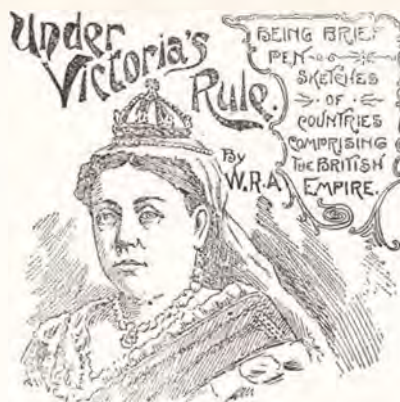 Under
Victoria's
Rule.
By
W.R.A.
BEING BRIEF
PEN
SKETCHES
OF
COUNTRIES
COMPRISING
THE BRITISH
EMPIRE.